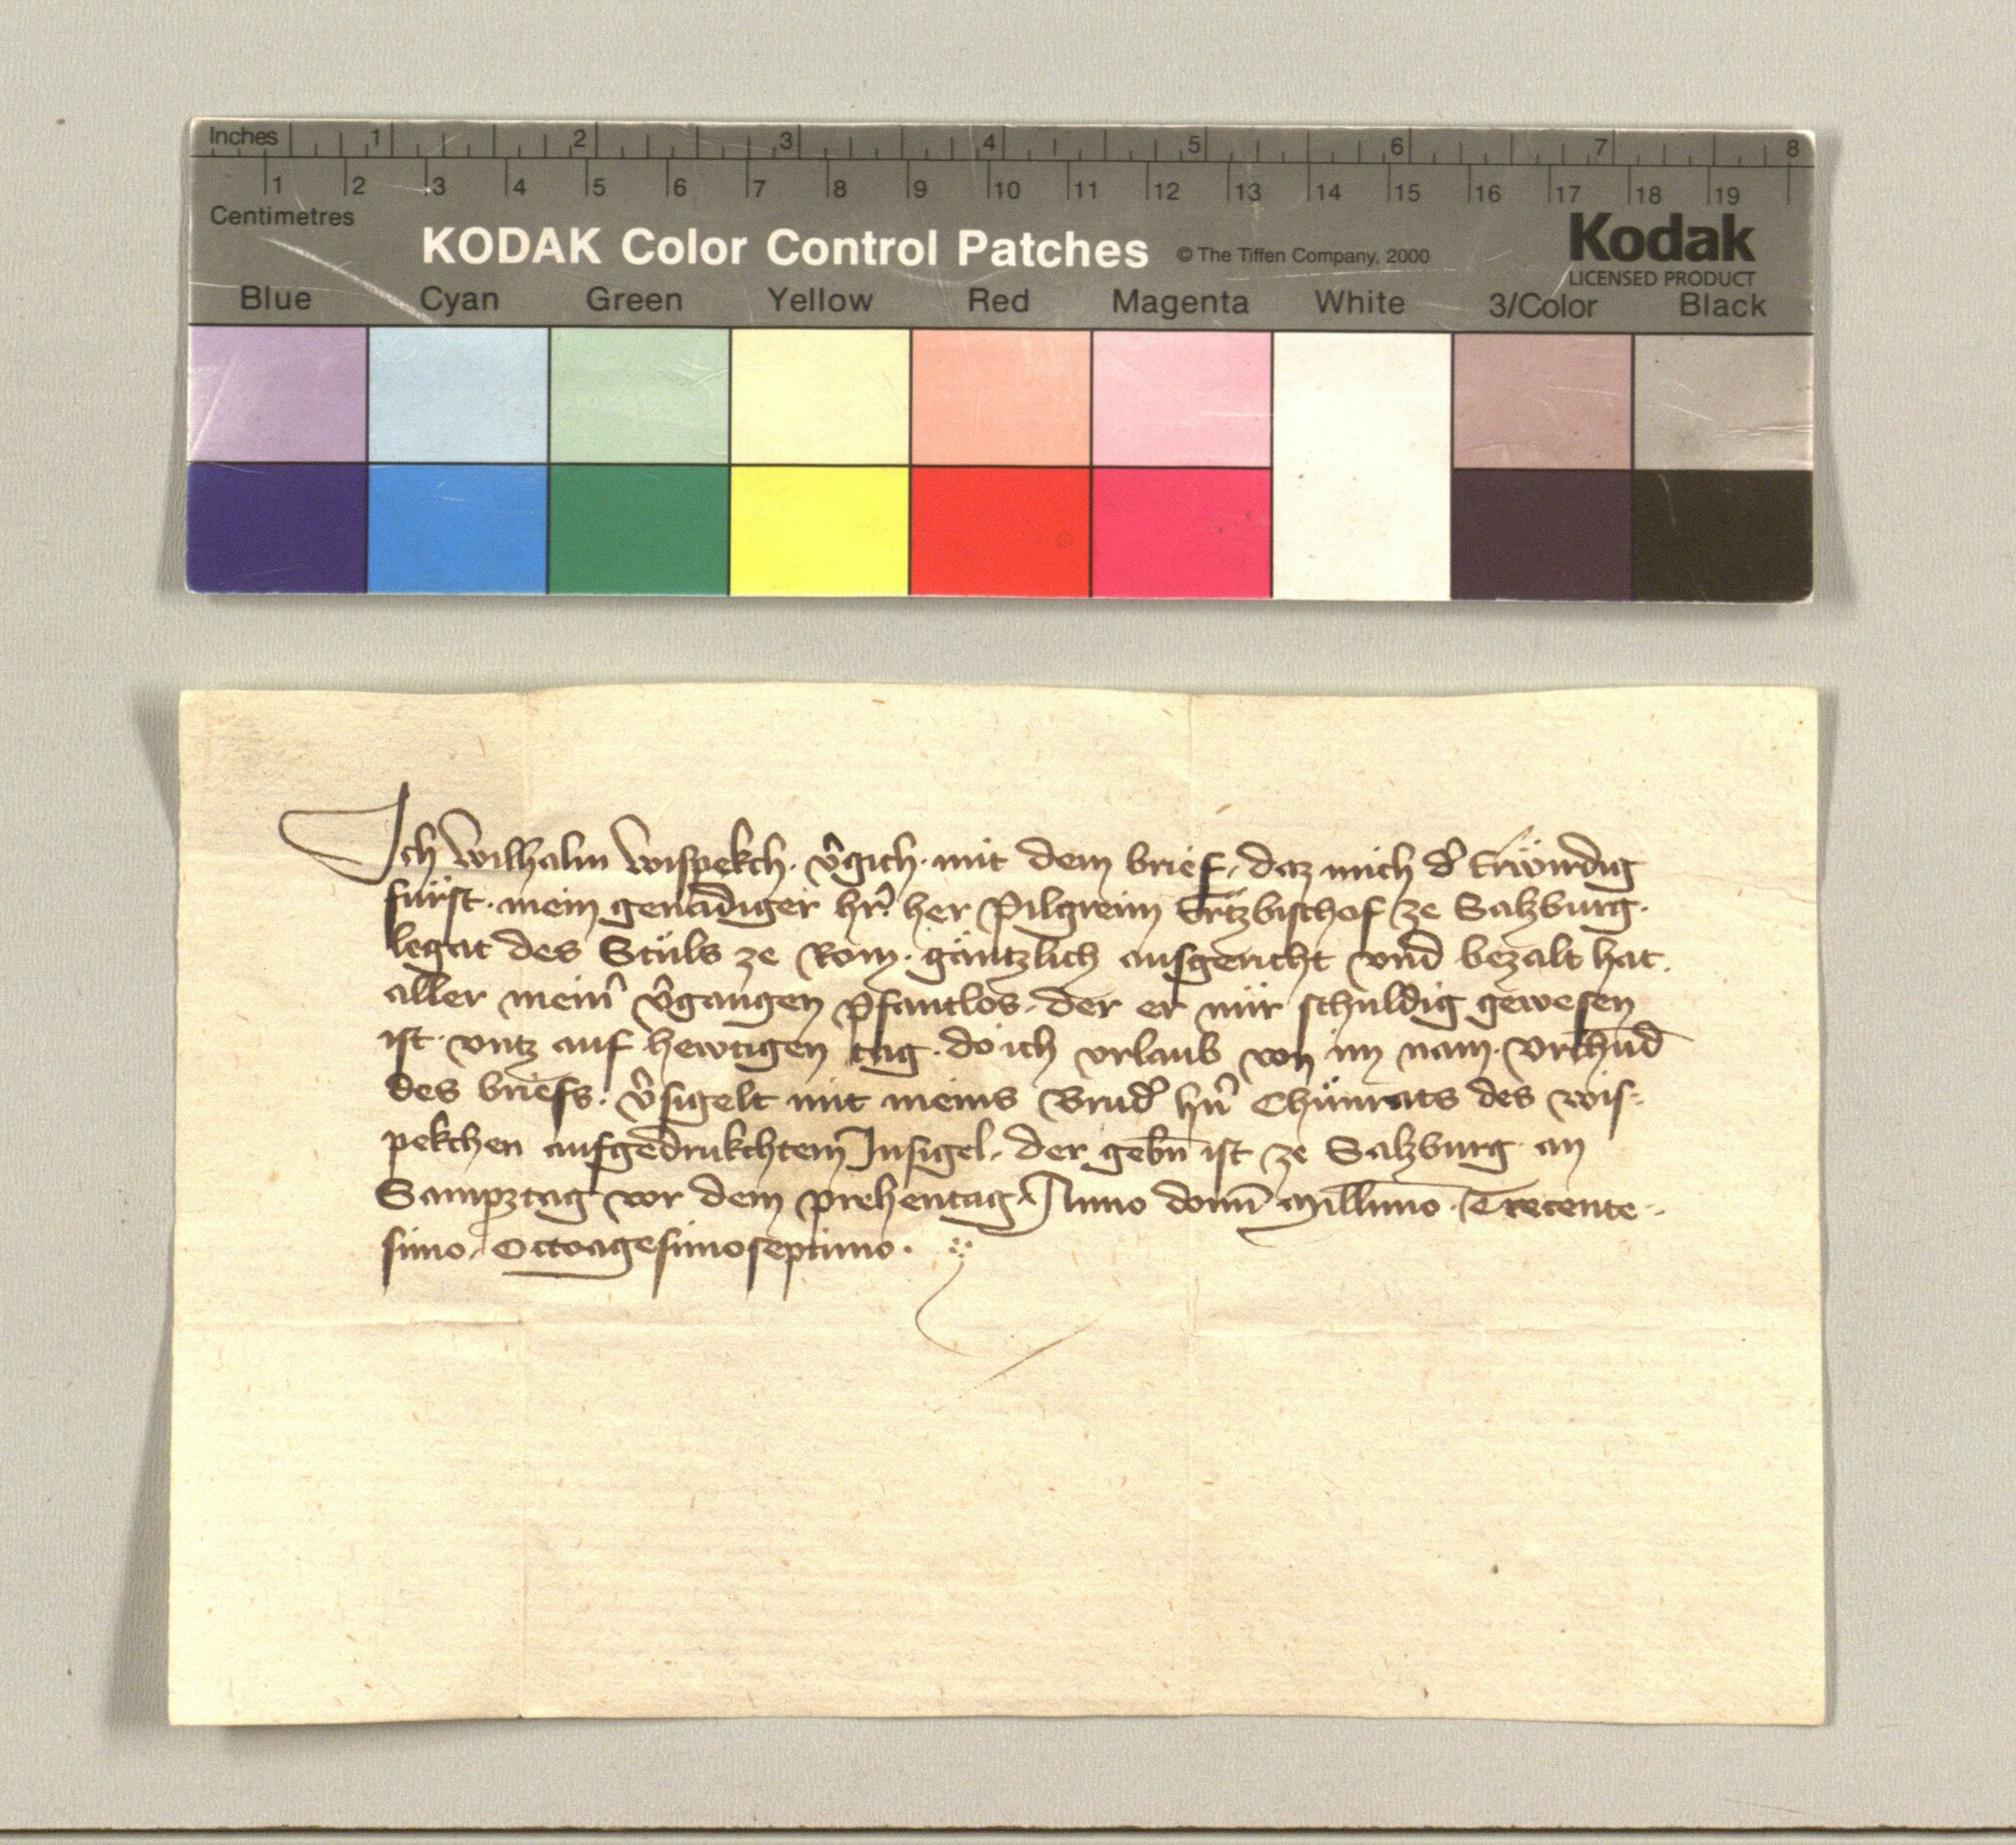 Inches 1 2 3 4 5 6 7 8
1 2 3 4 5 6 7 8 9 10 11 12 13 14 15 16 17 18 19
Centimetres
KODAK Color Control Patches © The Tiffen Company, 2000 Kodak
LICENSED PRODUCT
Blue Cyan Green Yellow Red Magenta White 3/Color Black
Ich Wilhalm Wispekch · v̂gich · mit dem brief, daz mich d̂ Erwirdig
fürst · mein genädiger hr̂ · her Pilgreim Ertzbischof ze Salzburg ·
legat des Stůls ze Rom · gäntzlich ausgericht vnd̄ bezalt hat ·
aller mein̂ v̂gangen pfantlos, der er mir schuldig gewesen
ist · vntz auf hewtigen tag · do ich vrlaub von im nam · vrchūd
des briefs · v̂sigelt mit meins Brud̂ hn̂ Chünrats des wis=
pekchen aufgedrukchtem Insigel, der gebn̄ ist ze Salzburg · an
Sampztag vor dem prehentag · Anno domī Millīmo · Trecente=
simo, Octoagesimoseptimo ·